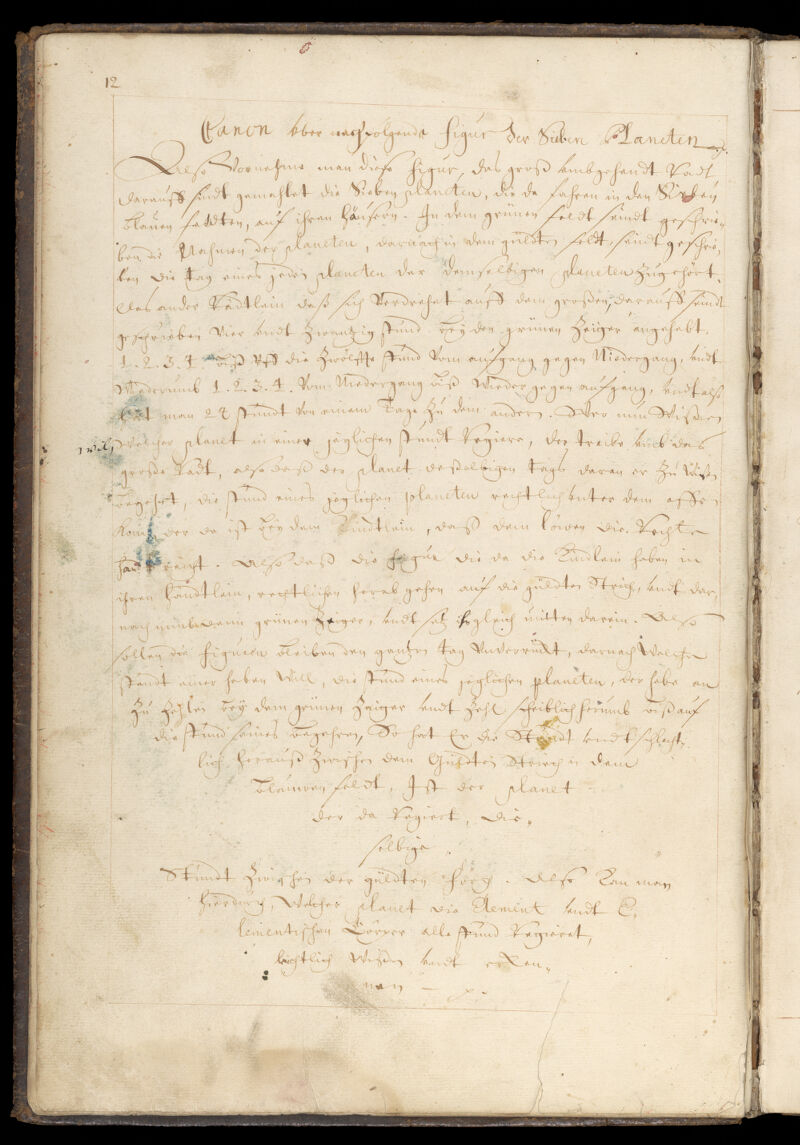 12
Canon vber nachfolgende Figur der Sieben Planeten
Also Vornehme man diese Figur, das groß umbgehendt Radt
darauff sindt gemahlet die Sieben planeten, die da fahren in den Sieben
blauen feldten, auf ihren häusern. In dem grünen feldt seindt geschrie-
ben die Nahmen der planeten, darnach in dem güldten feldt, seindt geschrie-
ben die tag eines jeden planeten der demselbigen planeten zugehört.
Das ander Rädtlein daß sich Verdrehet auff dem großen, darauff seindt
geschrieben Vier undt Zwantzig stund bey den grünen Zeiger angehebt.
1. 2. 3. 4 biß Vff die Zwölffte stund Vom aufgang gegen Niedergang, undt
Wiederumb 1. 2. 3. 4. Vom Niedergang biß Wieder gegen aufgang, undt also
hat man 24 stundt von einem Tage zu dem andern. Wer nun Wissen
will
Welcher planet in einer jeglichen stundt Regiere, der treibe umb das
große Radt, also daß der planet desselbigen tags daran er zu Wissen
begehrt, die stund eines jeglichen planeten rechtlich unter dem
der da ist bey dem Kindtlein, daß dem löwen die Rechte
handt. Also daß die figur die da die Kindlein haben in
ihren händtlein, rechtlichen herab gehen auf die güldten Strich, undt dar-
nach grünen Zeiger, undt gleich mitten darein. Also
sollen die figuren bleiben den gantzen tag Unverruckt, darnach Welche
stundt einer haben Will, die stund eines jeglichen planeten, der hebe an
zu zehlen bey dem grünen Zeiger undt zehl scheiblich herumb biß auf
die stund seines begehren, So hat Er die Stundt undt schlecht-
lich herauß zwischen dem Güldten Strich in dem
feldt, Ist der planet
der da Regiert, die-
selbige
Stundt zwischen der güldten. Also Kan man
hierdurch, Welcher planet die Element undt E-
lementischen Cörper alle stund Regieret,
Wissen undt erken-
nen